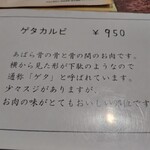 ゲタカルビ ￥950
あばら骨の骨と骨の間のお肉です。
横から見た形が下駄のようなので
通称「ゲタ」と呼ばれています。
少々スジがありますが、
お肉の味がとてもおいしい部位です